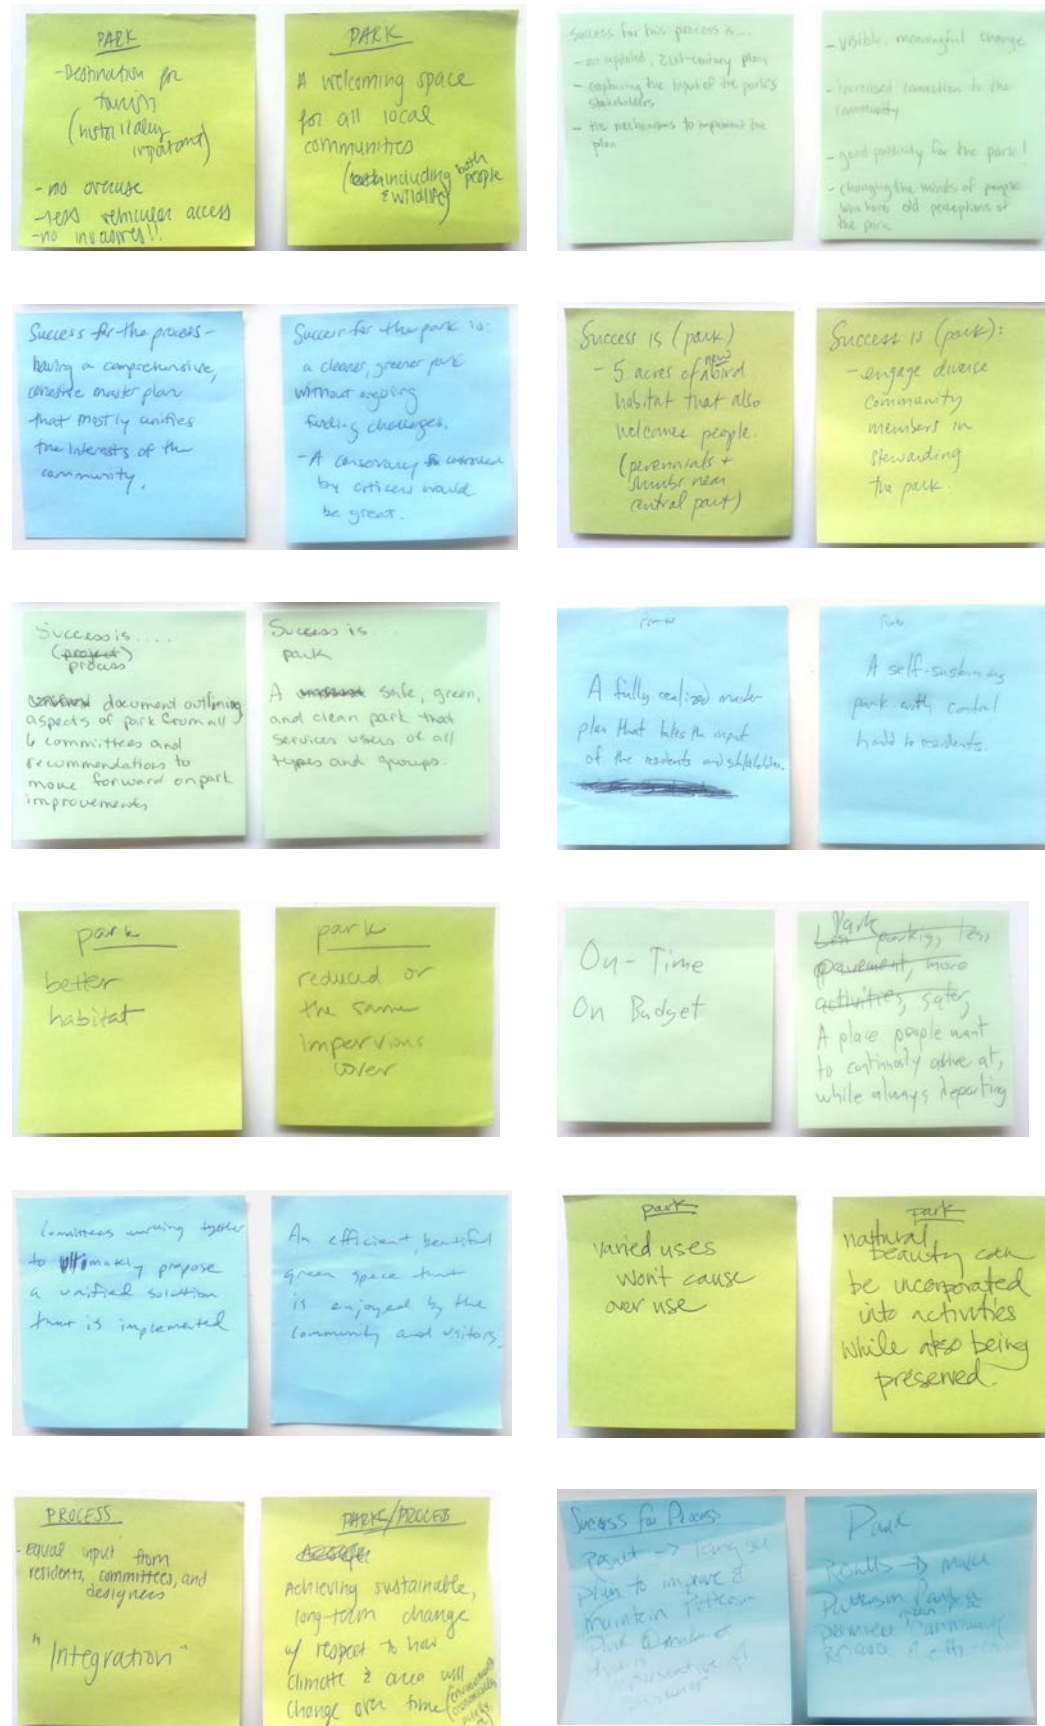 PARK
- Destination for
tourism
(historically
important)
- no overuse
- less vehicular access
- no invasives!!
PARK
A welcoming space
for all local
communities
(including both people
& wildlife)
Success for this process is...
- an updated, 21st-century plan
- capturing the input of the park's
stakeholders
- the mechanisms to implement the
plan
- visible, meaningful change
- increased connection to the
community
- good publicity for the park!
- changing the minds of people
who have old perceptions of
the park
Success for the process -
having a comprehensive,
master plan
that mostly unifies
the interests of the
community.
Success for the park is:
a cleaner, greener park
without ongoing
funding challenges.
- A conservancy controlled
by citizens would
be great.
Success is (park)
- 5 acres of new bird
habitat that also
welcomes people.
(perennials +
shrubs near
central part)
Success is (park):
- engage diverse
community
members in
stewarding
the park.
Success is....
(project)
process
document outlining
aspects of park from all
6 committees and
recommendations to
move forward on park
improvements
Success is...
park
A safe, green,
and clean park that
services users of all
types and groups.
Process
A fully realized master
plan that takes the input
of the residents and stakeholders.
Park
A self-sustaining
park with control
held to residents.
park
better
habitat
park
reduced or
the same
impervious
cover
On-Time
On Budget
Park
Less parking, less
pavement, more
activities, safer,
A place people want
to continously arrive at,
while always departing
Committees working together
to ultimately propose
a unified solution
that is implemented
An efficient, beautiful
green space that
is enjoyed by the
community and visitors.
park
varied uses
won't cause
over use
park
natural
beauty can
be incorporated
into activities
while also being
preserved.
PROCESS
- Equal input from
residents, committees, and
designers
"Integration"
PARKS/PROCESS
Achieving sustainable,
long-term change
w/ respect to how
climate & area will
change over time
Success for Process
Result -> long
plan to improve &
maintain Patterson
Park
that is
representative of
Park
Results -> make
Patterson Park a
permanent green